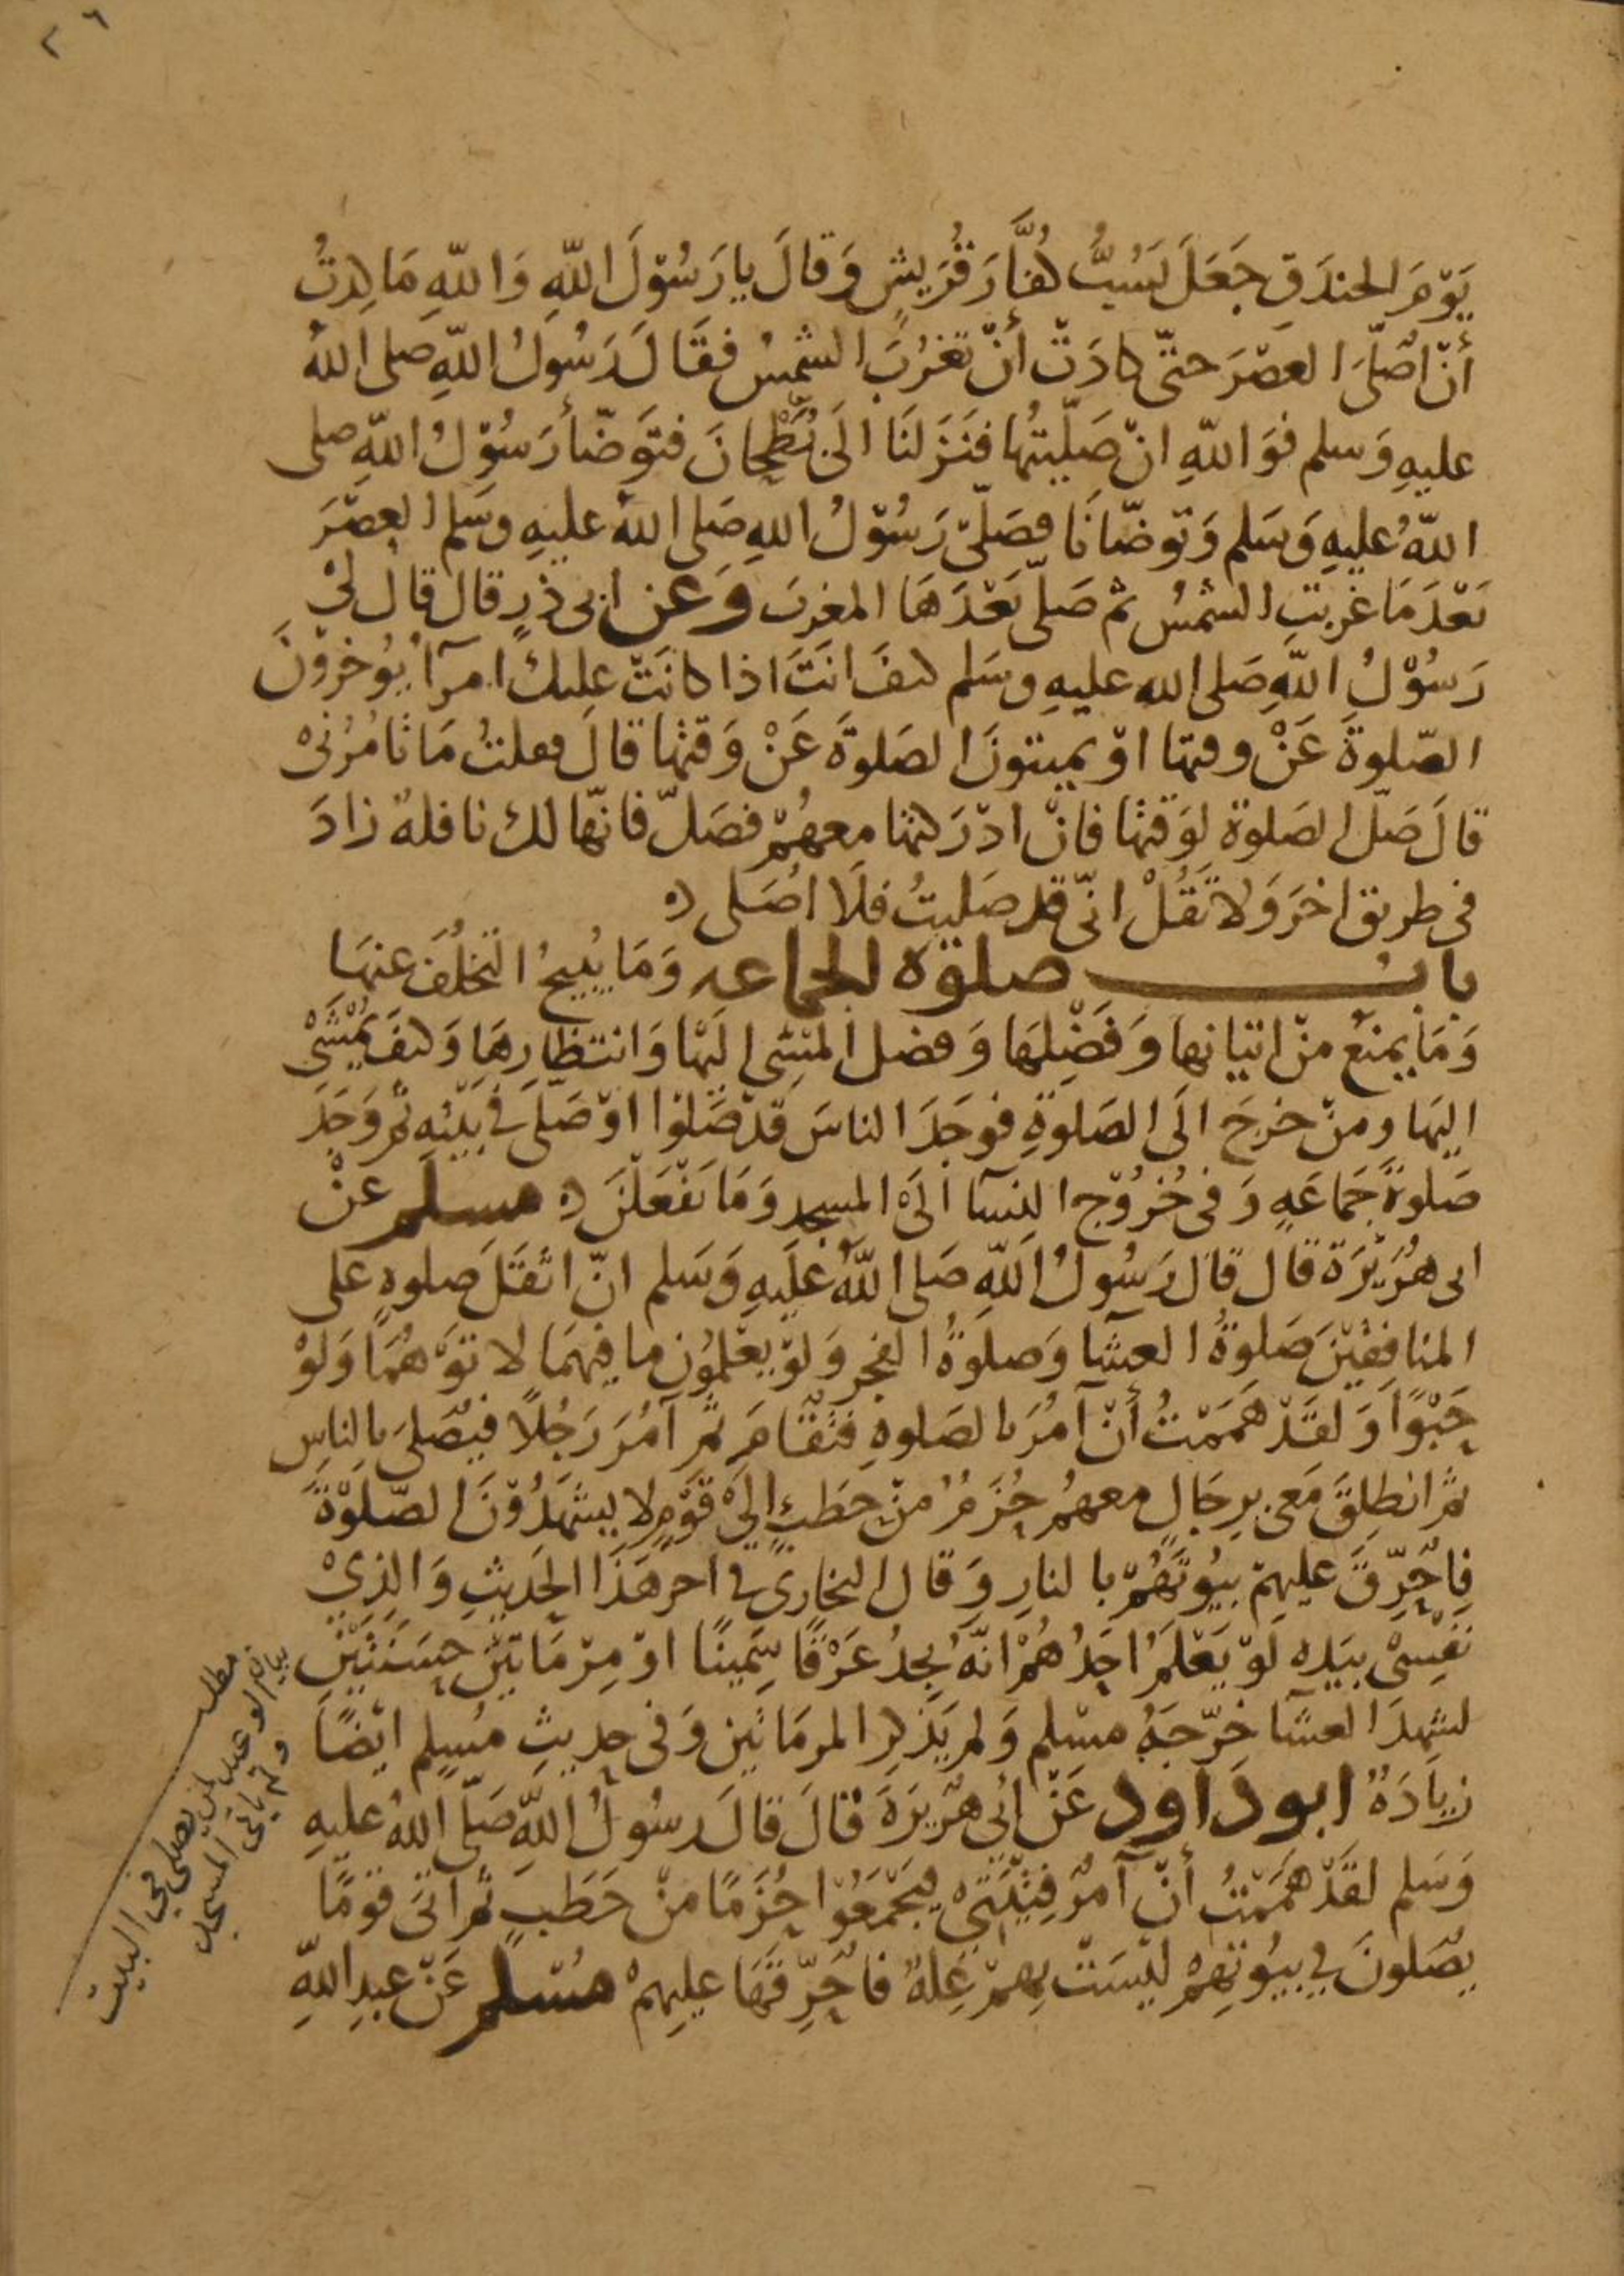 ٢٦
يَوْمَ الخندَقِ جَعَلَ يَسُبُّ كفَّارَ قُرَيشٍ وَقالَ يا رَسُوْلَ اللّهِ وَاللّهِ مَا كِدتُ
أنْ اصَلّى العصْرَ حتّى كادَتْ أنْ تغرُبَ الشمسُ فقَالَ رَسُولُ اللّهِ صلى اللهُ
عليهِ وَسلم فوَاللّهِ انْ صَلّيتُها فنَزَلنَا الَى بُطْحانَ فتوَضّأ رَسُوْلُ اللّهِ صلى
اللّهُ عليهِ وَسَلم وَتوضّانَا فصَلّى رَسُوْلُ اللهِ صَلى اللهُ عليهِ وسَلم العصْرَ
بَعْدَ مَا غربَتِ الشمسُ ثم صَلّى بَعْدَهَا المغربَ وَعن ابى ذرٍ قال قال لىْ
رَسُوْلُ اللّهِ صَلى الله عليهِ وسَلم كيفَ انتَ اذا كانَتْ عليك امرآءُ يُوخرُوْنَ
الصّلوةَ عَنْ وقتها اوْ يميتونَ الصَلوةَ عَنْ وَقتها قالَ فعلتُ مَا تامُرُنىْ
قالَ صَلّ الصَلوةَ لوَقتها فانْ ادْرَكتها معهُمْ فصَلّ فانّها لك نافلةٌ زادَ
فى طريق اخرَ وَلا تَقُلْ انّى قد صَليتُ فلَا اصَلى
بابُ صلوة الجماعه وَمَا يُبيحُ التخلُفَ عنهَا
وَمَا يمنعُ منْ اتيانها وَفَضْلِهَا وَفضل المشي اليْهَا وَانتظارِهَا وَكيفَ يُمْشَىْ
اليهَا ومنْ خرجَ الَى الصَلوةِ فوَجَدَ الناسَ قدْ صَلوْا اوْ صَلىَ فى بيْتِهِ ثم وَجَدَ
صَلوةَ جَمَاعَةٍ وَفى خُرُوْجِ النسآ الَىْ المسجد وَمَا يَفْعَلْنَ مسلم عنْ
ابى هُرَيْرَة قال قال رَسُولُ اللّهِ صَلى اللّهُ عليهِ وَسَلم انّ اثقَلَ صلوةٍ على
المنافِقِيْنَ صَلوةُ العشآ وَصلوةُ الفجر وَلوْ يعْلمُون ما فيهمَا لاتوْهُمَا وَلوْ
حَبْوًا وَلقَدْ هَمَمْتُ أنْ آمُرَ بالصَلوةِ فتُقَامَ ثم آمُرَ رَجُلًا فيُصَلىَ بالناسِ
ثم انطلقَ مَعى برِجَالٍ معهُمْ حُزَمٌ منْ حطَبٍ الىْ قوْمٍ لا يشهَدُوْنَ الصّلوْةَ
فاُحَرِّقَ عليهِمْ بيُوْتَهُمْ بالنارِ وَقال البخارىُ فى اخر هَذَا الحَديثِ وَالذِىْ
نفسِىْ بيَدِهِ لَوْ يَعْلَمُ احَدُهُمْ انّهُ يجدُ عَرْقًا سَمِينًا اوْ مِرْمَاتَيْنِ حَسَنَتَيْنِ
لشهدَ العشآ خرّجَهُ مسْلم وَلم يَذكر المرمَاتَين وَفى حديثِ مُسلِم ايْضًا
زيادَةٌ ابو داود عَنْ ابى هُرَيرَةَ قالَ قالَ رسُولُ اللّهِ صَلّى اللهُ عليهِ
وَسَلم لقَدْ هَمَمْتُ أنْ آمُرَ فِتْيَتىْ فيَجْمَعُوْا حُزَمًا منْ حَطَبٍ ثم آتىَ قومًا
يصَلونَ فى بيُوْتِهِمْ ليْسَتْ بِهِمْ عِلةٌ فاُحَرِّقَهَا عليهِمْ مُسْلم عَنْ عبدِ اللّهِ
مطلب
بيان الوعيد لمن يصلى فى البيت
ولم يأتى المسجد